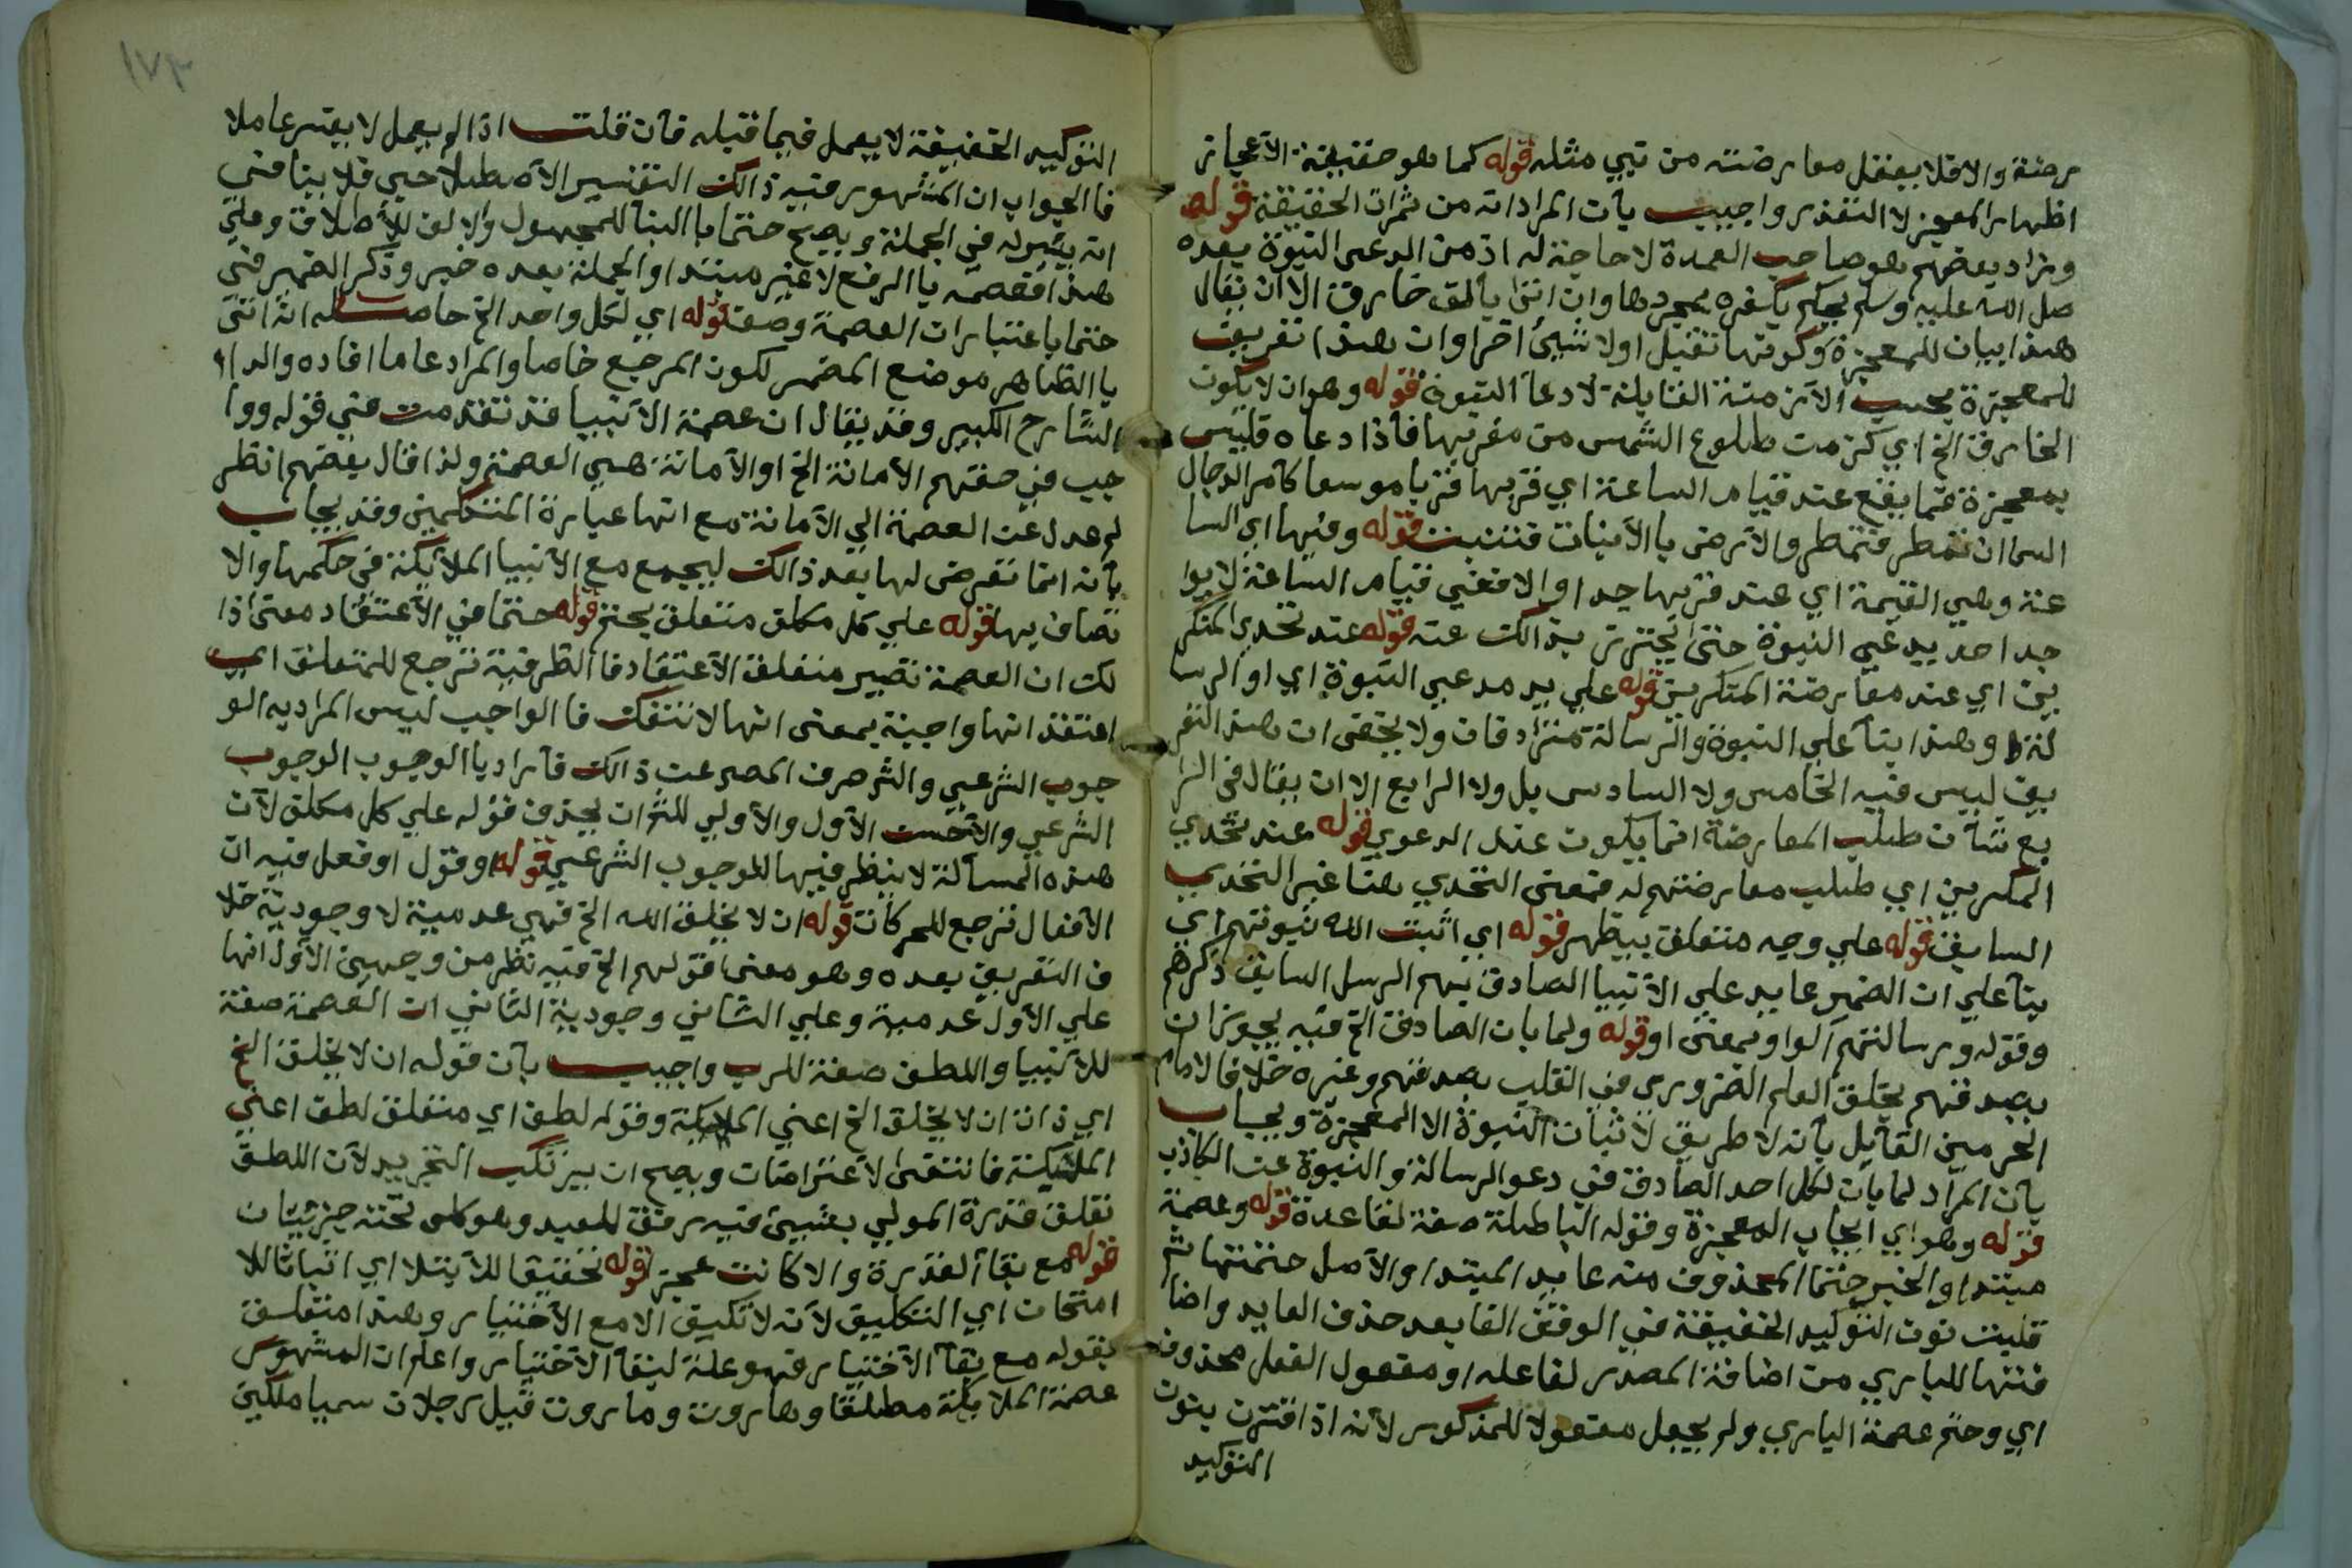 رضة والا فلا يعقل معارضته من نبي مثله قوله كما هو حقيقة الاعجاز
اظهار المعجز لا التقذر واجيب بأن المراد انه من ثمرات الحقيقة قوله
وزاد بعضهم هو صاحب العمدة لا حاجة له اذ من ادعى النبوة بعده
صل الله عليه وسلم يحكم بكفره بمجردها وان اتى بألف خارق الا ان يقال
هذا بيان للمعجزة وكونها تقبل اولا شيئ اخر او ان هذا تعريف
للمعجزة بحسب الأزمنة القابلة لادعآ النبوة قوله وهو ان لا يكون
الخارق الخ اي كزمن طلوع الشمس من مغربها فأذا دعاه فليس
بمعجزة فما يقع عند قيام الساعة اي قربها قربا موسعا كأمر الدجال
السما ان تمطر فتمطر والأرض باالأنبات فتنبت قوله وفيها اي السا
عة وهي القيمة اي عند قربها جدا والا فعني قيام الساعة لا يوا
جد احد يدعي النبوة حتى يحترز بذالك عنه قوله عند تحدي المنكر
ين اي عند معارضة المنكرين قوله علي يد مدعي النبوة اي او الرسا
لة وهذا بنآ علي ان النبوة والرسالة مترادفان ولا يخفى ان هذا التعر
يف ليس فيه الخامس ولا السادس بل ولا الرابع الا ان يقال في الرا
بع شأن طلب المعارضة انما يكون عند الدعوي قوله عند تحدي
المنكرين اي طلب معارضتهم له فمعنى التحدي هنا غير التحدي
السابق قوله علي وجه متعلق بيظهر قوله اي اثبت الله نبوتهم اي
بنآ علي ان الضمير عايد علي الأنبيا الصادق بهم الرسل السابق ذكرهم
وقوله ورسالتهم الواو بمعنى او قوله ولما بان الصادق الخ فيه يجوز ان
بصدقهم بخلق العلم الضروري في القلب بصدقهم وغيره خلافا لامام
الحرمين القآيل بأنه لا طريق لأثبات النبوة الا المعجزة ويجاب
بأن المراد لما بان لكل احد الصادق في دعو الرسالة والنبوة عن الكاذب
قوله وهو اي ايجاب المعجزة وقوله الباطلة صفة لقاعدة قوله وعصمة
مبتدا والخبر حتما المحذوف منه عايد المبتدا والأصل حتمنها ثم
قلبت نون التوكيد الخفيفة في الوقف الفا بعد حذف العايد واضا
فتها للباري من اضافة المصدر لفاعله او مفعول الفعل محذوف
اي وحتم عصمة الباري ولم يجعل مفعولا للمذكور لأنه اذا اقترن بنون
التوكيد
التوكيد الخفيفة لا يعمل فيما قبله فأن قلت اذا لم يعمل لا يفسر عاملا
فا الجواب ان المشهور فيه ذالك التفسير الأصطلاحي فلا ينافي
انه يفسره في الجملة ويصح حتما با البنآ للمجهول والالف للأطلاق وعلي
هذا فعصمه با الرفع لا غير مبتدا والجملة بعده خبر وذكر الضمير في
حتما با عتبار ان العصمة وصف قوله اي لكل واحد الخ حاصله انه اتى
با الظاهر موضع المضمر لكون المرجع خاصا والمراد عاما افاده والدا
الشارح الكبير وقد يقال ان عصمة الأنبيا قد تقدمت في قوله ووا
جب في حقهم الأمانة الخ او الأمانة هي العصمة ولذا قال بعضهم انظر
لم عدل عن العصمة الي الأمانة مع انها عبارة المتكلمين وقد يجاب
بأنه انما تعرض لها بعد ذالك ليجمع مع الأنبيا الملآئكة في حكمها والا
تصاف بها قوله علي كل مكلف متعلق بحتم قوله حتما في الأعتقاد معنى ذا
لك ان العصمة تصير متعلقة الأعتقاد فا الظرفية ترجع للمتعلق اي
اعتقد انها واجبة بمعنى انها لا تنفك فا الواجب ليس المراد به الو
جوب الشرعي والشر صرف المصر عن ذالك فأراد باالوجوب الوجوب
الشرعي والأحسن الأول والأولي للشر ان يحذف قوله علي كل مكلف لأن
هذه المسألة لا ينظر فيها للوجوب الشرعي قوله او قول او فعل فيه ان
الأفعال ترجع للحركات قوله ان لا يخلق الله الخ فهي عدمية لا وجودية خلا
ف التعريف بعده وهو معنى قولهم الخ فيه نظر من وجهين الأول انها
علي الأول عدمية وعلي الثاني وجودية الثاني ان العصمة صفة
للأنبيا واللطف صفة للرب واجيب بأن قوله ان لا يخلق الخ
اي ذات ان لا يخلق الخ اعني الملايكة وقوله لطف اي متعلق لطف اعني
الملايكة فانتقى لأعتراضات ويصح ان يرتكب التجريد لأن اللطف
تعلق قدرة المولي بشيئ فيه رفق للعبد وهو كلى تحته جزئيات
قوله مع بقآ القدرة والا كانت عجز قوله تحقيقا للأبتلا اي اثباتا للا
امتحان اي التكليف لأنه لا تكليف الا مع الأختيار وهذا متعلق
بقوله مع بقآ الأختيار فهو علة لبقآ الأختيار واعلم ان المشهور
عصمة الملايكة مطلقا وهاروت وماروت قيل رجلان سميا ملكين